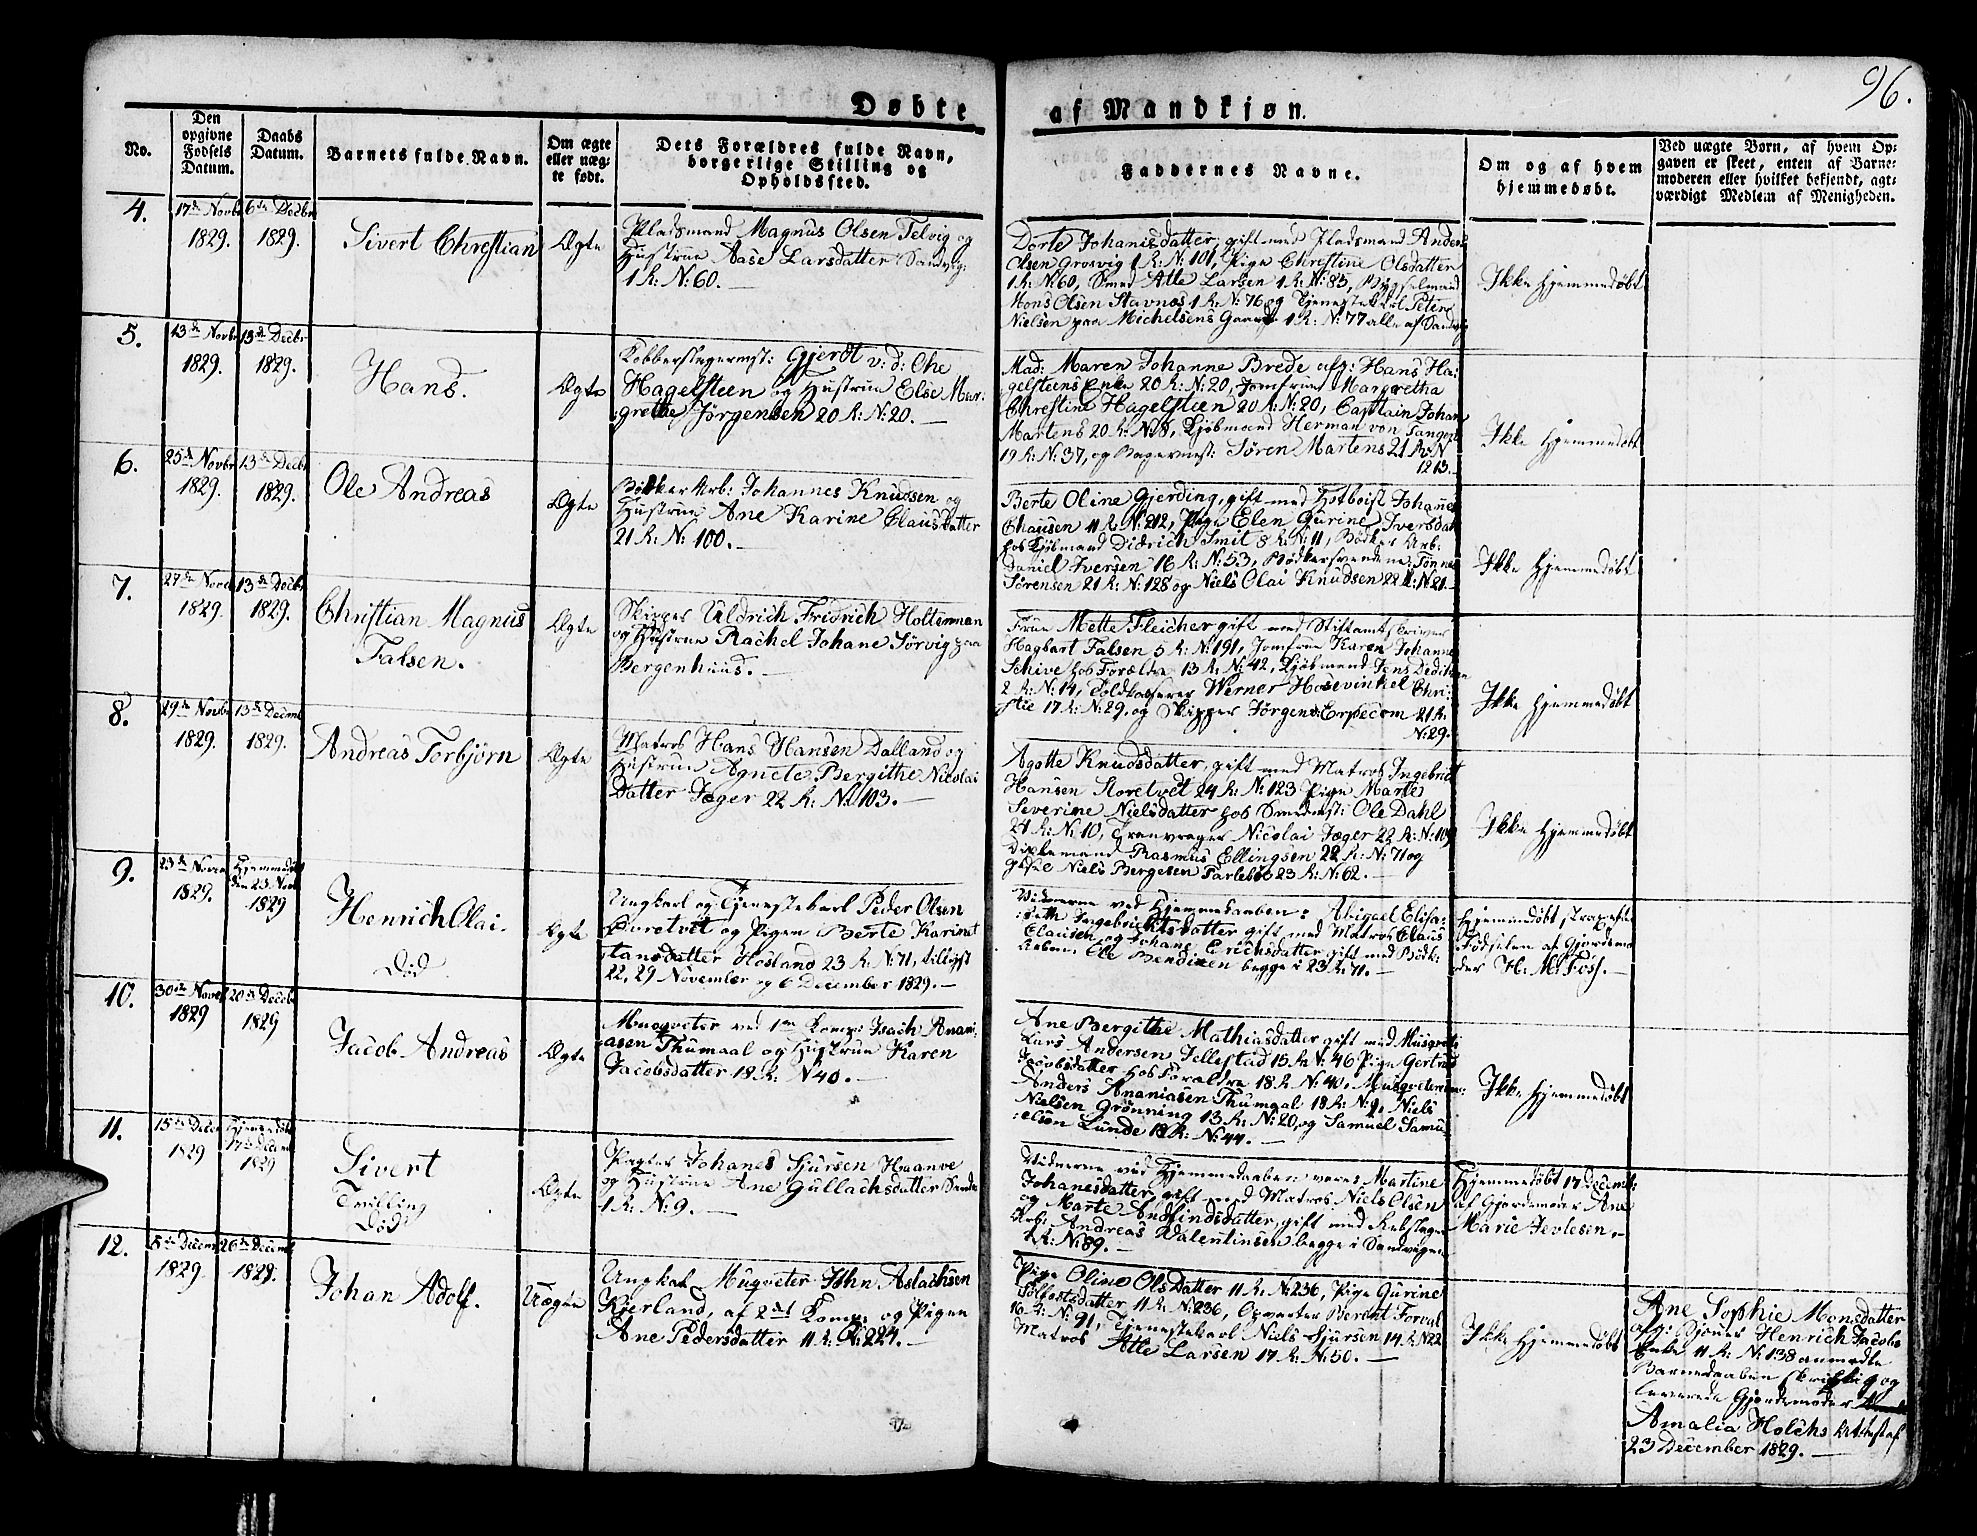 96.
Døbte af Mandkjøn.
No.
Den
opgivne
Fødsels
Datum.
Daabs
Datum.
Barnets fulde Navn.
Om ægte
eller uæg-
te født.
Dets Forældres fulde Navn,
borgerlige Stilling og
Opholdssted.
Faddernes Navne.
Om og af hvem
hjemmedøbt.
Ved uægte Børn, af hvem Op-
gaven er skeet, enten af Barne-
moderen eller hvilket bekjendt, agt-
værdigt Medlem af Menigheden.
4.
17de Novbr
1829.
6te Decbr
1829.
Sivert Chrestian
Ægte
Pladsmand Magnus Olsen Telvig og
Hustrue Aase Larsdatter Sandvig
1 R: N: 60.
Dorte Johanisdatter, gift med Pladsmand Anders
Olsen Grosvig 1 R: N: 101, Pige Christine Olsdatter
1 R: N: 60, Smed Atle Larsen 1 R: N: 85, Bygselmand
Mons Olsen Stavnæs 1 R: N: 76 og Tjenestekarl Peter
Nielsen paa Michelsens Gaard 1 R: N: 77 alle af Sandvig
Ikke Hjemmedøbt
5.
13de Novbr
1829.
13de Decbr
1829.
Hans.
Ægte
Kobberslagermst: Gjerdt v: d: Ohe
Hagelsteen og Hustrue Else Mar-
grethe Jørgensen 20 R: N: 20.
Mad: Maren Johanne Brede afg: Hans Ha-
gelsteens Enke 20 R: N: 20, Jomfrue Margretha
Chrestine Hagelsteen 20 R: N: 20, Captain Johan
Martens 20 R: N: 8, Kjøbmand Herman von Tangen
19 R: N: 37, og Bagermst: Søren Martens 21 R: N
1213.
Ikke Hjemmedøbt
6.
25de Novbr
1829.
13de Decbr
1829.
Ole Andreas
Ægte
Bødker Arb: Johannes Knudsen og
Hustrue Ane Karine Clausdatter
21 R: N: 100.
Berte Oline Gjerding, gift med Hotboist Johannes
Chausen 11 R: N: 212, Pige Elen Gurine Iversdatr
hos Kjøbmand Didrich Smit 8 R: N: 11, Bødker Arb:
Daniel Iversen 16 R: N: 53, Bødkersvendene Tønnes
Sørensen 21 R: N: 128 og Niels Olai Knudsen 22 R: N: 21.
Ikke Hjemmedøbt
7.
27de Novbr
1829.
13de Decbr
1829.
Christian Magnus
Falsen.
Ægte
Skipper Uldrich Fridrich Holterman
og Hustrue Rachel Johane Sørvig paa
Bergenhuus.
Frue Mette Fleicher gift med Stiftamtskriver
Hagbart Falsen 5 R: N: 191, Jomfrue Karen Johanne
Schive hos Forældre 13 R: N: 42, Kjøbmand Jens Dedichen
2 R: N: 14, Toldkasserer Werner Hosevinkel Chri-
stie 17 R: N: 29, og Skipper Jørgen Erpecom 21 R.
N: 29.
Ikke Hjemmedøbt
8.
29de Novbr
1829.
13de Decmb
1829.
Andreas Torbjørn
Ægte
Matros Hans Hansen Dalland og
Hustrue Agnete Bergithe Nicolai
Datter Jæger 22 R: N: 103.
Agotte Knudsdatter, gift med Matros Ingebrict
Hansen Storetvet 24 R: N: 123 Pige Marte
Severine Nielsdatter hos Smedmst: Ole Dahl
21 R: N: 10, Tranvrager Nicolai Jæger 22 R: N: 109
Dikkemand Rasmus Ellingsen 22 R: N: 71 og
Niels Bergesen Tarlebøe 23 R: N: 62.
Ikke Hjemmedøbt
9.
23de Novbr
1829.
Hjemmedøbt
den 23 Novb
1829
Henrich Olai.
Død
Ægte
Ungkarl og Tjenestekarl Peder Olsen
og Pigen Berte Karine
Hosland 23 R: N: 71, tillyst
22, 29 November og 6 December 1829.
Vidnerne ved Hjemmedaaben: Abigael Elisa-
beth Ingebrictsdatter gift med Matros Claus
Clausen og Johane Erichsdatter gift med Bødk:
Arbm: Ole Bendixen begge i 23 R: 71.
Hjemmedøbt strax efter
Fødselen af Gjordemo-
der H. M. Foss.
10.
30te Novbr
1829
20de Decbr
1829
Jacob Andreas
Ægte
Musqveter ved 1ste Komp: Isach Anani-
asen Thumaal og Hustrue Karen
Jacobsdatter 18 R: N 40.
Ane Bergithe Mathiasdatter gift med Musqveter
Lars Andersen Tellestad 15 R N: 46 Pige Gertrud
Jacobsdatter hos Forældre 18 R: N: 40, Musqveterne:
Anders Ananiasen Thumaal 18 R: N: 9, Niels
Nielsen Grønning 13 R: N: 20, og Samuel Samu-
elsen Lunde 18 R: N: 44.
Ikke Hjemmedøbt
11.
15de Decbr
1829
Hjemmedøbt
17de Decmb
1829
Sivert
Trilling
Død
Ægte
Pagter Johanes Sjursen Haanve
og Hustrue Ane Gullachsdatter Sandv
1 R: N: 9.
Vidnerne ved Hjemmedaaben vare: Martine
Johanesdatter, gift med Matros Niels Olsen
og Marte Andfindsdatter, gift med Rebslager
Arb: Andreas Valentinsen begge i Sandvigen
1 R: N: 89.
Hjemmedøbt 17 Decemb:
af Gjordemoder Ane
Marie Jevlesen.
12.
8de Decem
1829
26de Decemb
1829.
Johan Adolf.
Uægte
Ungkal Muqveter John Aslachsen
Kjerland, af 2det Komp: og Pigen
Ane Pedersdatter 11 R: N: 224.
Pige Oline OlsDatter 11 R: N: 236, Pige Gurine
Solfestsdatter 11 R: N: 236, Opvarter Berent Forvel
16 R: N: 91, Tjenestekarl Niels Sjursen 14 R: N 22
Matros Atle Larsen 17 R: N: 50.
Ikke Hjemmedøbt
Ane Sophie Monsdatter
afg: Henrich Jacobs
Enke 11 R: N: 138 anmeldte
Barnedaaben skriftlig og
leverede Gjordemoder
Amalia Holchs Attest af
23 December 1829.